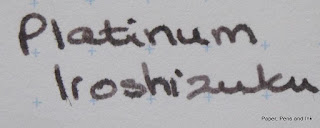 Platinum
Iroshizuku
Paper, Pens and Ink